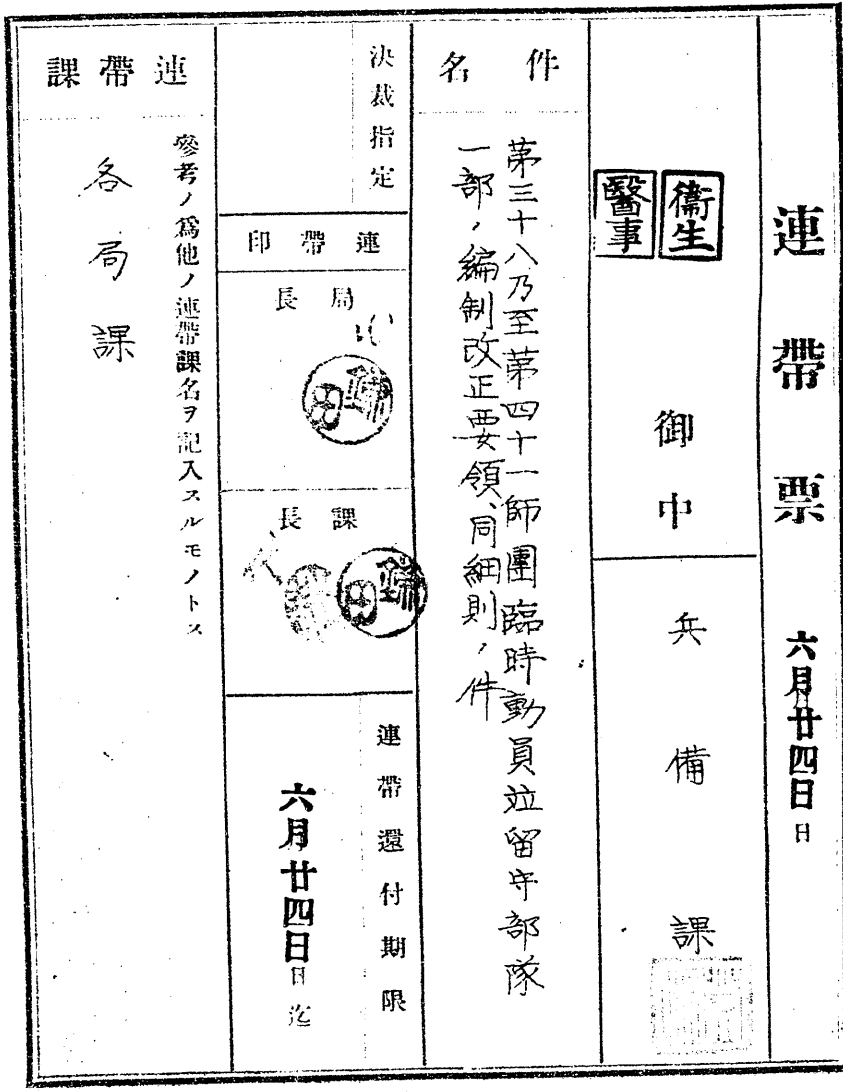 連帶票 六月廿四日日
衞生
醫事
御中
兵備課
件名
第三十八乃至第四十一師團臨時動員竝留守部隊
一部ノ編制改正要領、同細則ノ件
決裁指定
連帶印
局長
鎌田
課長
鎌田
連帶還付期限
六月廿四日日迄
連帶課
參考ノ爲他ノ連帶課名ヲ記入スルモノトス
各局課